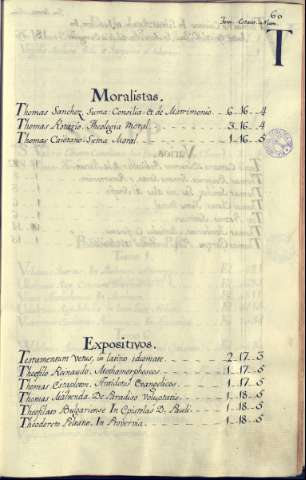 60
Tom. Estant. Num.
T
Moralistas.
Thomas Sanchez Suma Consilia et de Matrimonio 6 16 4
Thomas Theologia Moral 3 16 4
Thomas Caietano Suma Moral 1 16 5
Expositivos.
Testamentum Vetus, in latino idiomate 2 17 3
Theofilo Reinaudo, Methamorphoseos 1 17 5
Thomas Estapleton, Antidotus Evangelicos 1 17 5
Thomas Malvenda De Paradiso Voluptatis 1 18 5
Theofilato Bulgariense In Epistolas D. Pauli 1 18 5
Theodoreto In Provervia 1 18 5